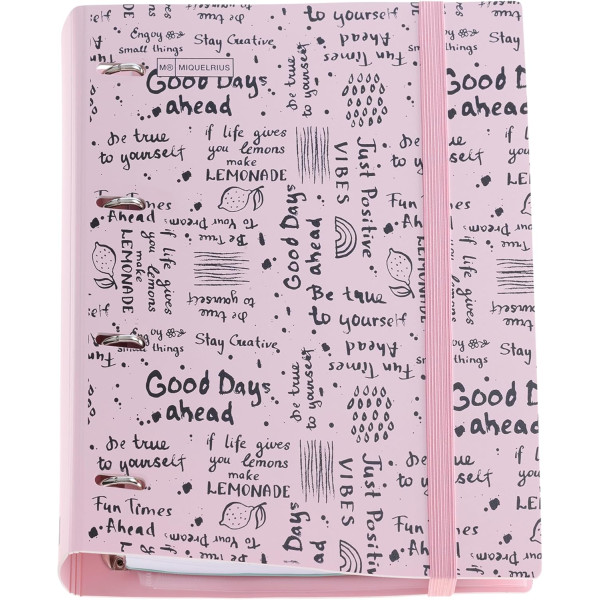 Enjoy
small things
Stay Creative
M® MIQUELRIUS
Good Days
ahead
be true
to yourself
Fun Times
Ahead
be true
to yourself
if life gives
you lemons
make
LEMONADE
Just Positive
VIBES
Good Days
ahead
Fun Times
Ahead
To Your Dreams
Be True
if life gives
you lemons
make
LEMONADE
to yourself
Be true
to yourself
Enjoy
small things
Stay Creative
Fun Times
Ahead
LEMONADE
Good Days
ahead
be true
to yourself
be true
to yourself
if life gives
you lemons
make
LEMONADE
Just Positive
VIBES
Fun Times
Ahead
Good Days
ahead
To Your Dreams
Be True
Stay
Good
ahead
be true
to yourself
Fun
Ahead
Stay
Good
ahead
be true
to yourself